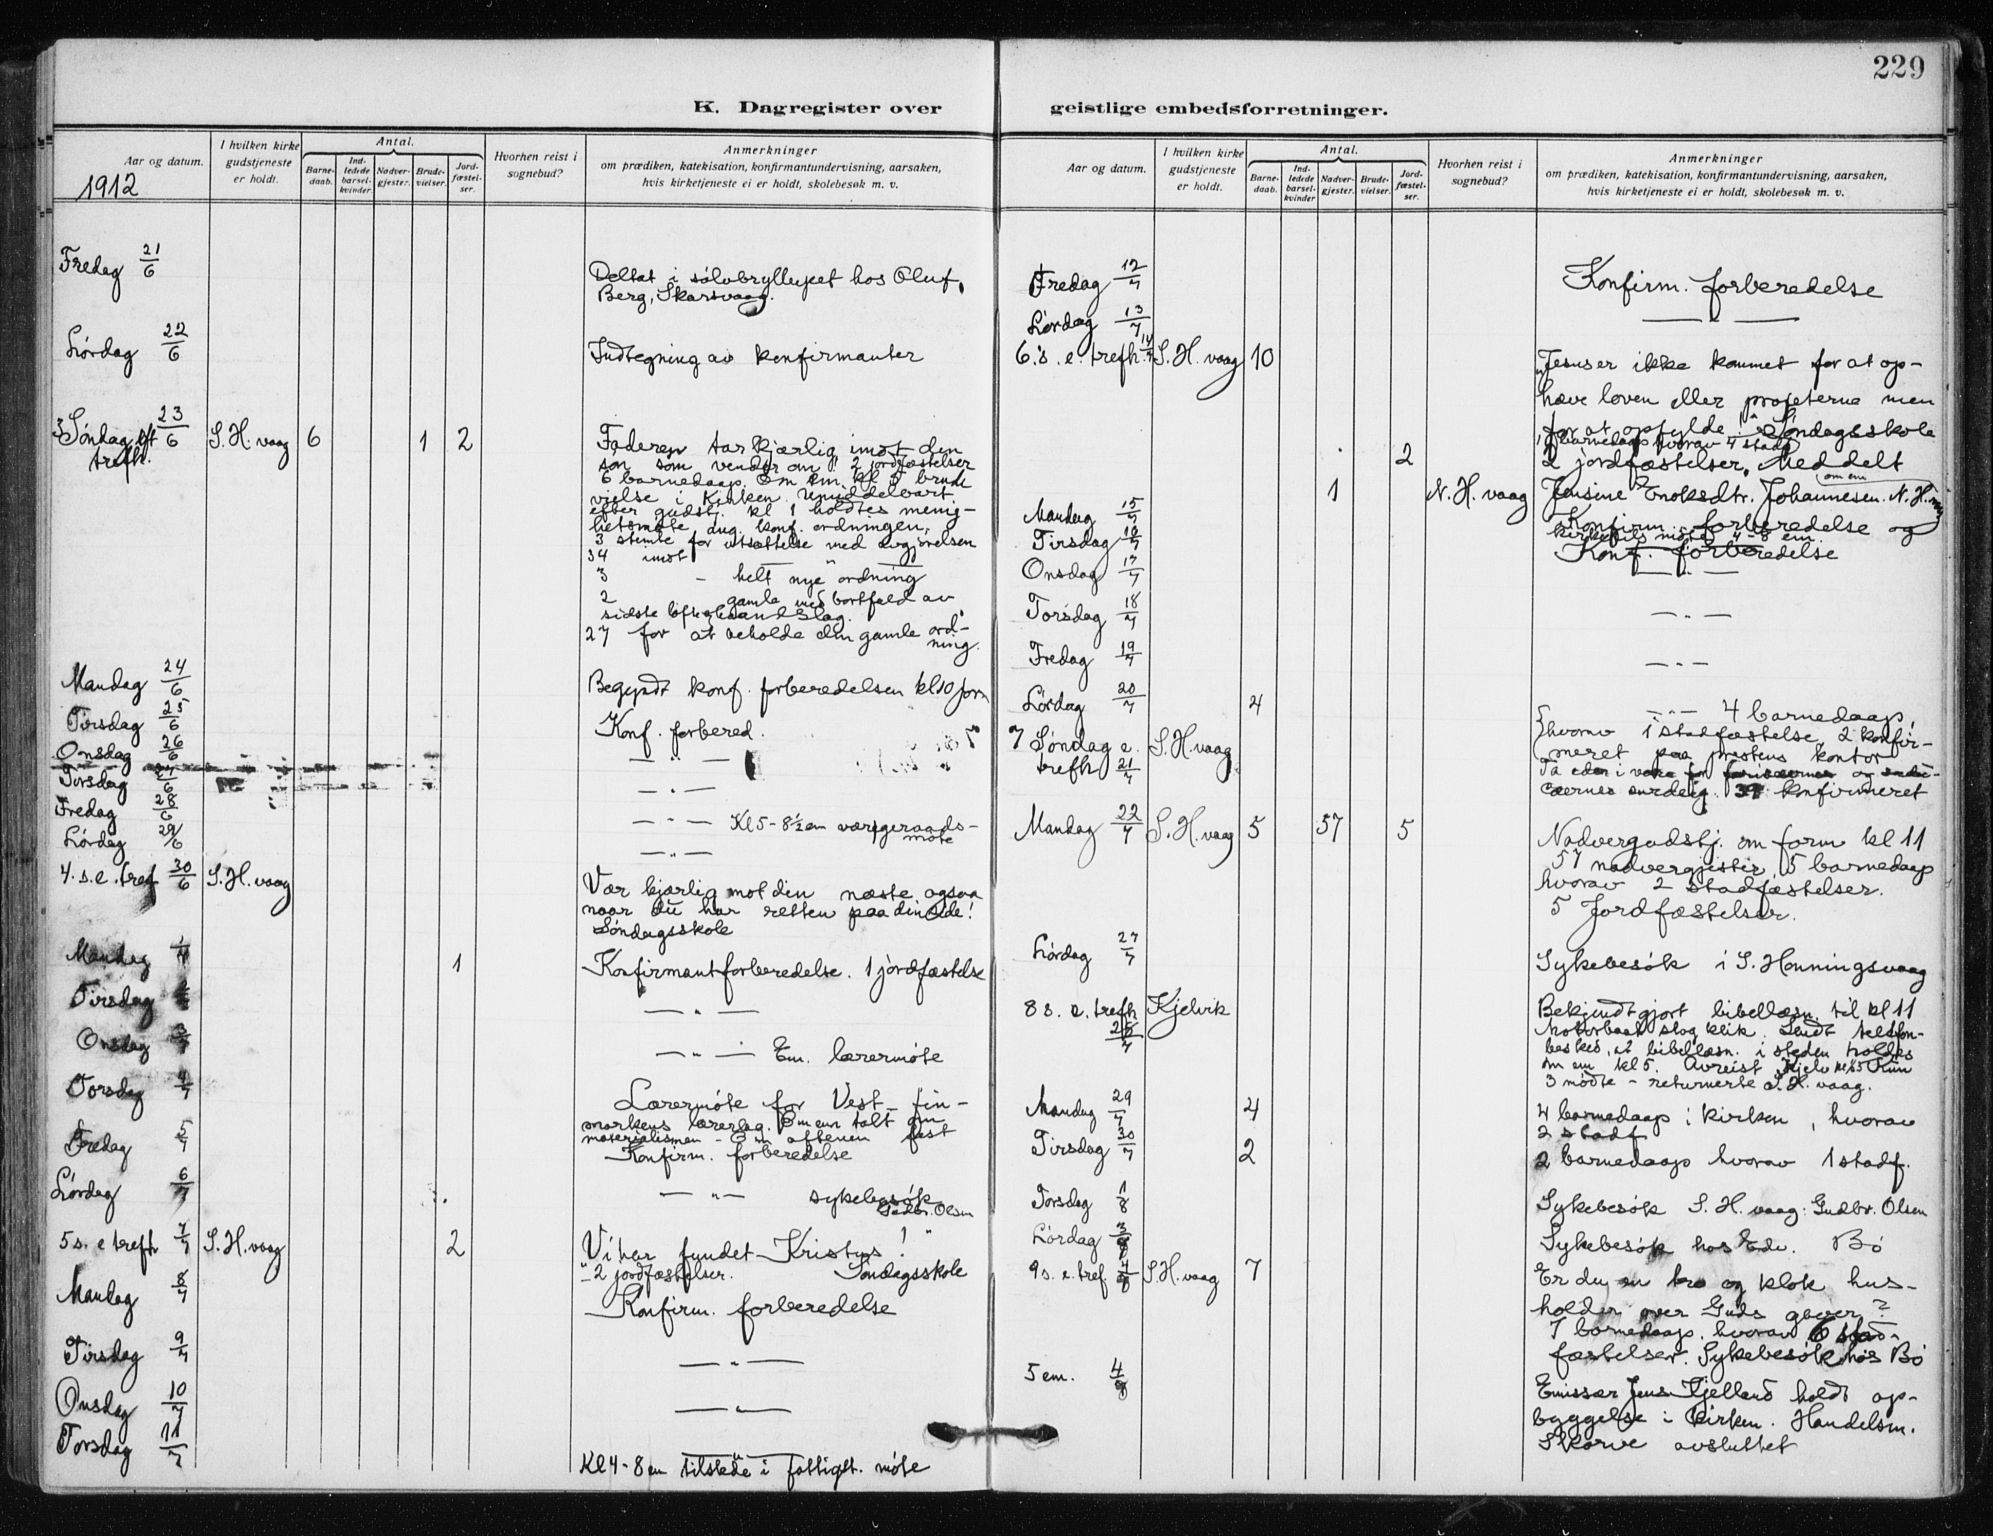 229
K. Dagregister over
geistlige embedsforretninger.
Aar og datum.
1912
I hvilken kirke
gudstjeneste
er holdt.
Antal.
Barne-
daab.
Ind-
ledede
barsel-
kvinder.
Nadver-
gjester.
Brude-
vielser.
Jord-
fæstel-
ser.
Hvorhen reist i
sognebud?
Anmerkninger
om prædiken, katekisation, konfirmantundervisning, aarsaken,
hvis kirketjeneste ei er holdt, skolebesøk m. v.
Fredag 21/6
Deltat i sølvbryllupet hos Oluf
Berg, Skarsvaag.
Lördag 22/6
Indtegning av konfirmanter
3 Söndag eft 23/6 S. H. vaag 6 1 2
trefh.
Faderen tar kjærlig imot den
søn som vender om! 2 jordfæstelser
6 barnedaap. Em em. kl 5 brude
vielse i Kirken. Umiddelbart
efter gudstj. kl 1 holdtes menig-
hetsmøte ang. konf. ordningen,
3 stemte for utsættelse med avgjørelsen
34 imot
3 - helt nye ordning
2 gamle med bortfald av
sidste løfte haandslag.
27 for at beholde den gamle ord-
ning.
Mandag 24/6 Begyndt konf. forberedelsen kl 10 form
Tirsdag 25/6 Konf. forbered.
Onsdag 26/6 — " —
Torsdag 27/6 — " —
Fredag 28/6 — " — Kl 5 - 8½ em værgeraads-
møte
Lördag 29/6 — " —
4. s. e. tref 30/6 S. H. vaag
Vær kjærlig mot din næste ogsaa
naar du har retten paa din side!
Söndagsskole
Mandag 1/7 1 Konfirmantforberedelse. 1 jordfæstelse
Tirsdag 2/7 — " —
Onsdag 3/7 — " — Em. lærermöte
Torsdag 4/7 Lærermöte for Vest-fin-
markens lærerlag. Em em talt om
materialismen - Em aftenen fest
Fredag 5/7 Konfirm. forberedelse
Lördag 6/7 — " — sykebesök
Gudbr. Olsen
5 s. e trefh 7/7 S. H. vaag 2 "Vi har fundet Kristus!"
- 2 jordfæstelser. Söndagsskole
Mandag 8/7 Konfirm. forberedelse
Tirsdag 9/7 — " —
Onsdag 10/7 — " —
Torsdag 11/7 — " —
Kl 4 - 8 em tilstede i fattigst. möte
Aar og datum.
I hvilken kirke
gudstjeneste
er holdt.
Antal.
Barne-
daab.
Ind-
ledede
barsel-
kvinder
Nadver-
gjester.
Brude-
vielser.
Jord-
fæstel-
ser.
Hvorhen reist i
sognebud?
Anmerkninger
om prædiken, katekisation, konfirmantundervisning, aarsaken,
hvis kirketjeneste ei er holdt, skolebesøk m. v.
Fredag 12/7 Konfirm. forberedelse
Lördag 13/7 — " —
6. s. e. trefh 14/7 S. H. vaag 10 "Jesus er ikke kommet for at op-
hæve loven eller profeterne men
for at opfylde" Söndagsskole
10 barnedaap hvorav 4 stadf
2 2 jordfæstelser. Meddelt
om em
1 N. H. vaag Jensine Enoksdtr. Johannesen. N. H.
Mandag 15/7 Konfirm. forberedelse og
Tirsdag 16/7 kirketils möte 4-8 em.
Konf. forberedelse
Onsdag 17/7 — " —
Torsdag 18/7 — " —
Fredag 19/7 — " —
Lördag 20/7 4 — " — 4 barnedaap,
hvorav 1 stadfæstelse, 2 konfir-
meret paa prestens kontor
7 Söndag e. S. H. vaag
trefh 21/7
Ta eder i vare for farisæernes og saddu-
cæernes surdeig. 39 konfirmeret
Mandag 22/7 S. H. vaag 5 57 5 Nadvergudstj. om form kl 11
57 nadvergjester, 5 barnedaap
hvorav 2 stadfæstelser.
5 Jordfæstelser.
Lördag 27/7 Sykebesök i S. Honningsvaag
8 s. e. trefh Kjelvik
28/7
Bekjendtgjort bibellæsn. til kl 11
Motorbaat slog klik. Sendt telefon-
besked, at bibellæsn. i steden holdes
om em kl 5. Avreist Kjelv kl 5 Kun
3 mödte - returnerte S. H. vaag.
Mandag 29/7 4 4 barnedaap i kirken, hvorav
2 stadf
Tirsdag 30/7 2 2 barnedaap hvorav 1 stadf.
Torsdag 1/8 Sykebesök S. H. vaag: Gudbr. Olsen
Lördag 3/8 Sykebesök hos Edv. Bö
9 s. e. tref. 4/8 S. H. vaag 7 Er du en tro og klok hus-
holder over Guds gaver?
7 barnedaap. hvorav 6 stad-
fæstelser. Sykebesök hos Bö
5 em. 4/8 Emissær Jens Kjelland holdt op-
byggelse i kirken. Handelsm.
Skorve avsluttet